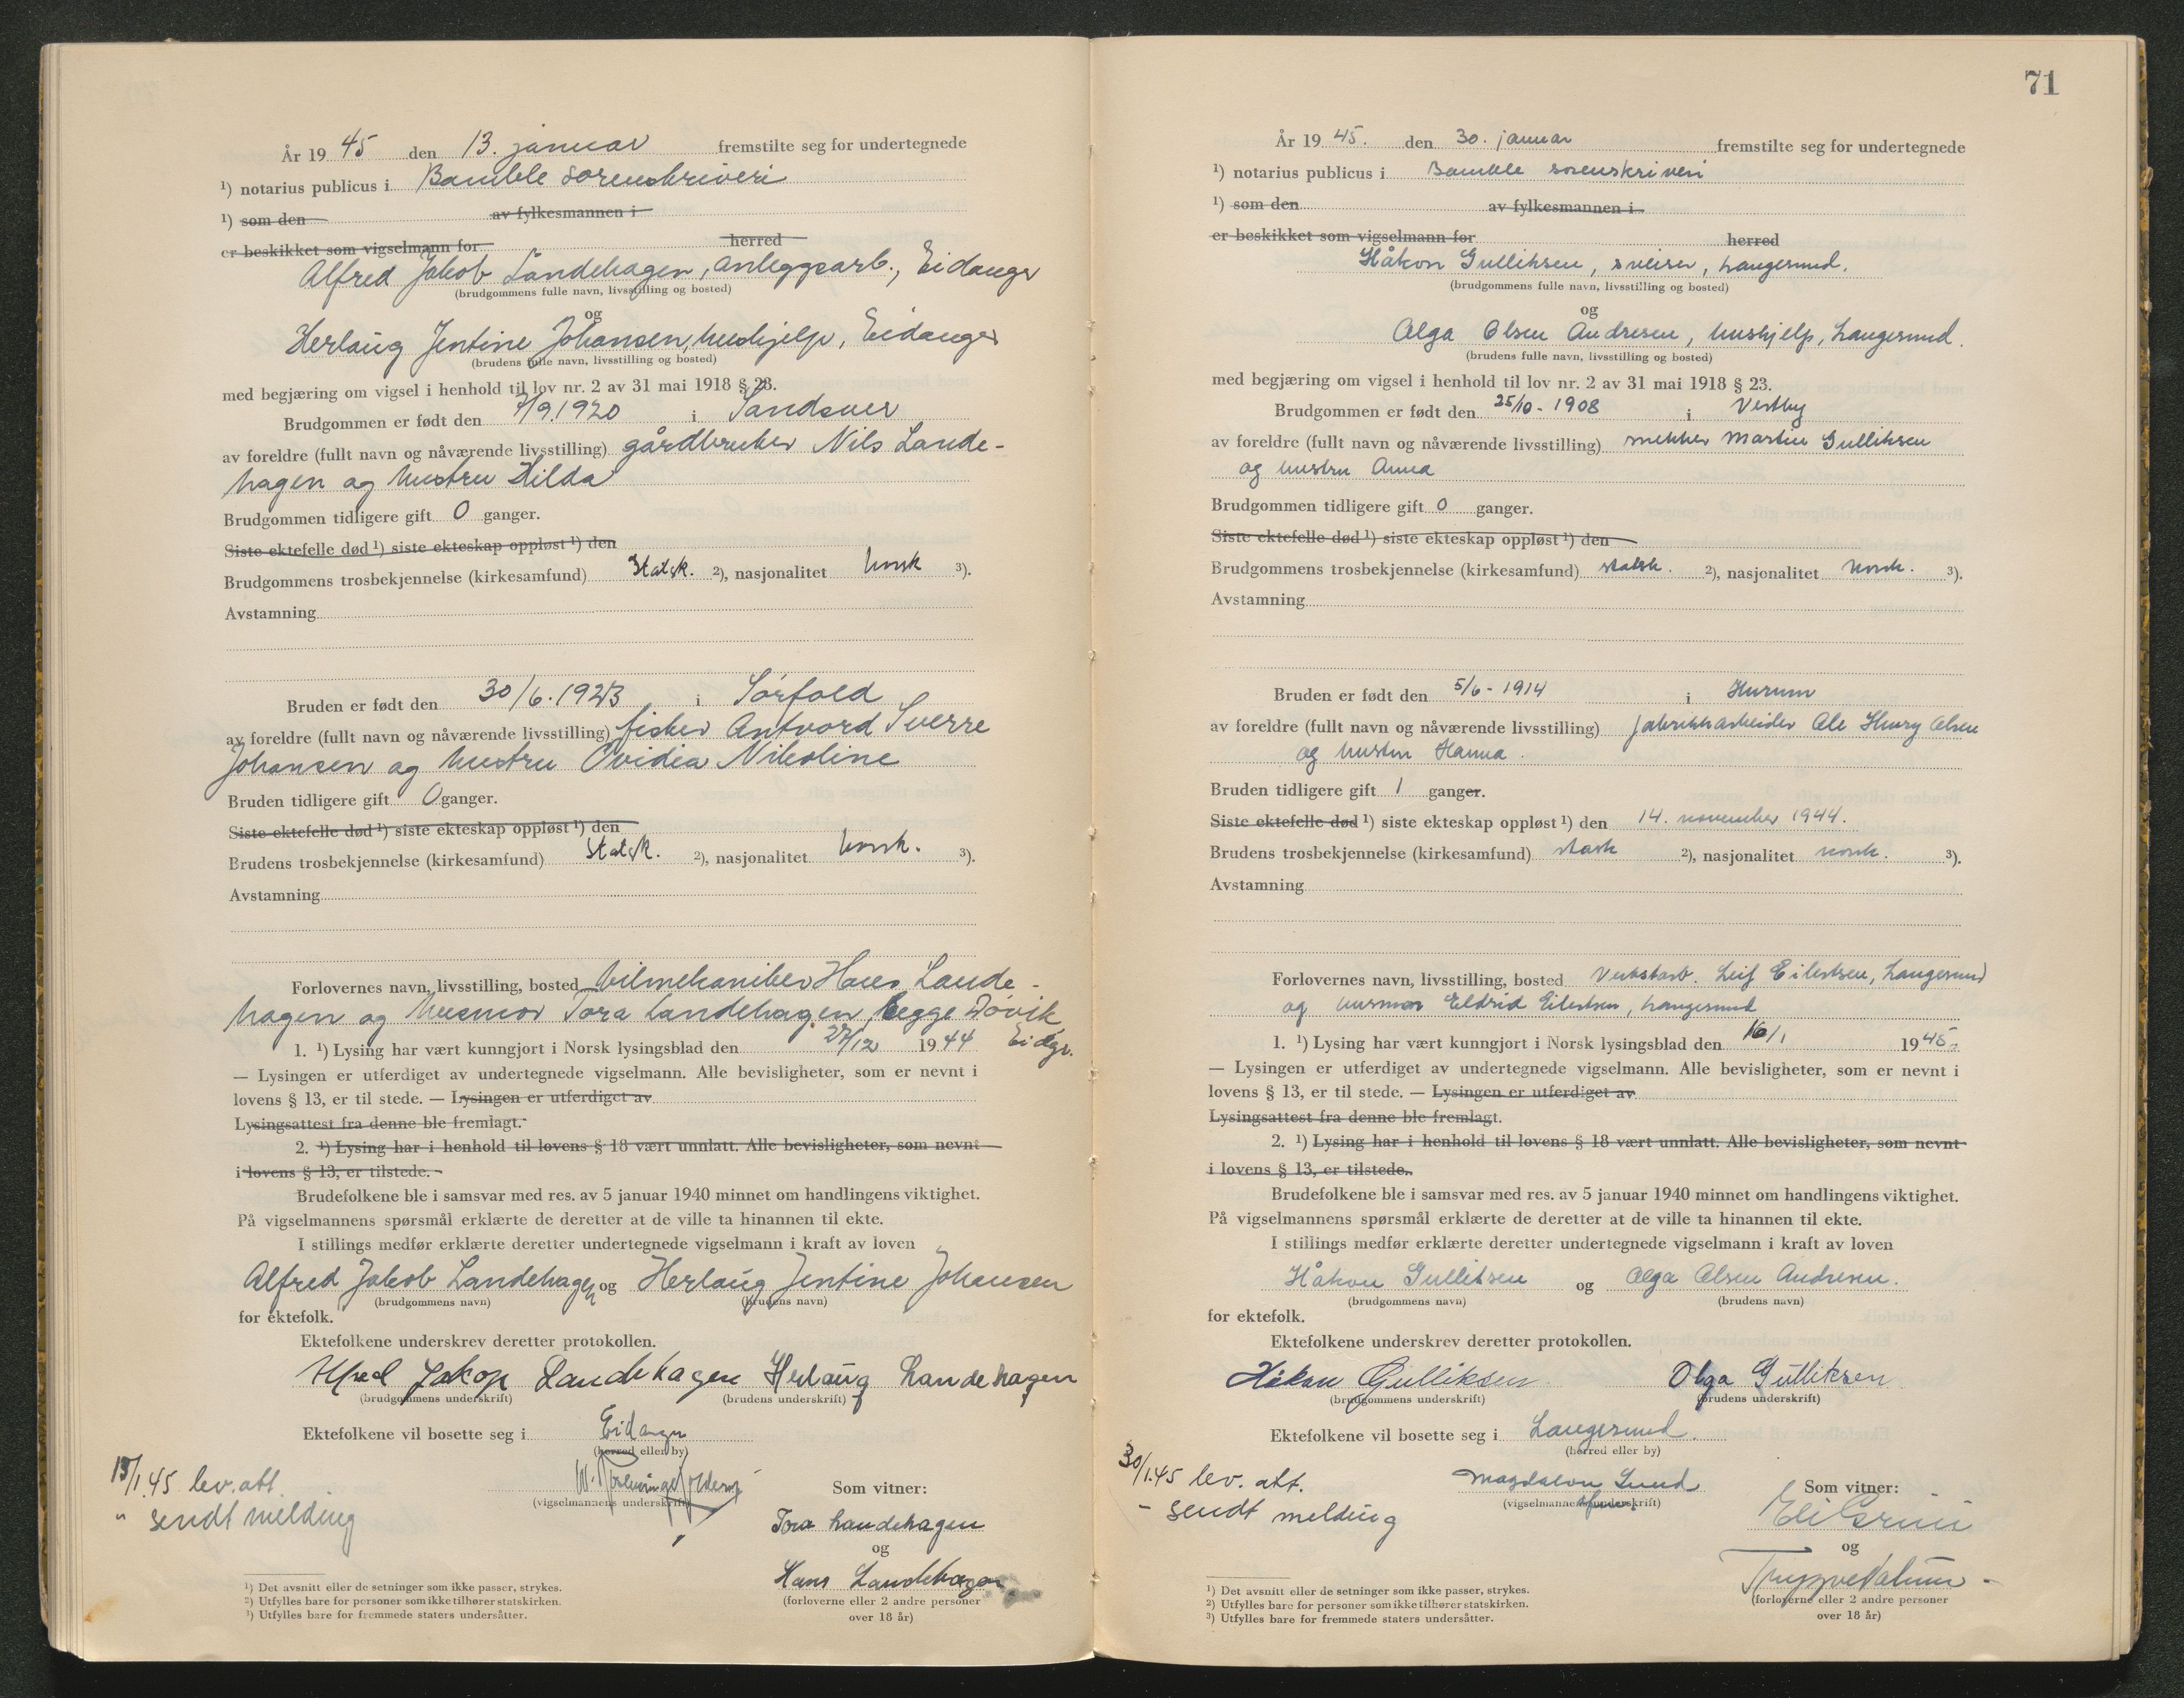 År 19 45 den 13. januar fremstilte seg for undertegnede
¹) notarius publicus i Bamble sorenskriveri
¹) som den av fylkesmannen i
er beskikket som vigselmann for herred
Alfred Jakob Landehagen, anleggsarb., Eidanger
(brudgommens fulle navn, livsstilling og bosted)
og
Herlaug Jentine Johansen, hushjelp, Eidanger
(brudens fulle navn, livsstilling og bosted)
med begjæring om vigsel i henhold til lov nr. 2 av 31 mai 1918 § 23.
Brudgommen er født den 4/9.1920 i Sandsver
av foreldre (fullt navn og nåværende livsstilling) gårdbruker Nils Lande-
hagen og hustru Hilda
Brudgommen tidligere gift 0 ganger.
Siste ektefelle død ¹) siste ekteskap oppløst ¹) den
Brudgommens trosbekjennelse (kirkesamfund) Statsk. ²), nasjonalitet norsk ³).
Avstamning
Bruden er født den 30/6.1923 i Sørfold
av foreldre (fullt navn og nåværende livsstilling) fisker Antvord Sverre
Johansen og hustru Ovidia Nikoline
Bruden tidligere gift 0 ganger.
Siste ektefelle død ¹) siste ekteskap oppløst ¹) den
Brudens trosbekjennelse (kirkesamfund) Statsk. ²), nasjonalitet norsk. ³).
Avstamning
Forlovernes navn, livsstilling, bosted bilmekaniker Hans Lande-
hagen og husmor Tora Landehagen, begge Døvik
Eidgr.
1. ¹) Lysing har vært kunngjort i Norsk lysingsblad den 27/12 1944
— Lysingen er utferdiget av undertegnede vigselmann. Alle bevisligheter, som er nevnt i
lovens § 13, er til stede. — Lysingen er utferdiget av
Lysingsattest fra denne ble fremlagt.
2. ¹) Lysing har i henhold til lovens § 18 vært unnlatt. Alle bevisligheter, som nevnt
i lovens § 13, er tilstede.
Brudefolkene ble i samsvar med res. av 5 januar 1940 minnet om handlingens viktighet.
På vigselmannens spørsmål erklærte de deretter at de ville ta hinannen til ekte.
I stillings medfør erklærte deretter undertegnede vigselmann i kraft av loven
Alfred Jakob Landehagen og Herlaug Jentine Johansen
(brudgommens navn) (brudens navn)
for ektefolk.
Ektefolkene underskrev deretter protokollen.
Alfred Jakop Landehagen Herlaug Landehagen
(brudgommens underskrift) (brudens underskrift)
Ektefolkene vil bosette seg i Eidanger
(herred eller by)
15/1.45 lev. att.
" sendt melding
(vigselmannens underskrift)
Som vitner:
Tora Landehagen
og
Hans Landehagen
(forloverne eller 2 andre personer
over 18 år)
¹) Det avsnitt eller de setninger som ikke passer, strykes.
²) Utfylles bare for personer som ikke tilhører statskirken.
³) Utfylles bare for fremmede staters undersåtter.
71
År 19 45. den 30. januar fremstilte seg for undertegnede
¹) notarius publicus i Bamble sorenskriveri
¹) som den av fylkesmannen i
er beskikket som vigselmann for herred
Håkon Gulliksen, sveiser, Langesund.
(brudgommens fulle navn, livsstilling og bosted)
og
Olga Olsen Andresen, hushjelp, Langesund.
(brudens fulle navn, livsstilling og bosted)
med begjæring om vigsel i henhold til lov nr. 2 av 31 mai 1918 § 23.
Brudgommen er født den 25/10 - 1908 i Vestby
av foreldre (fullt navn og nåværende livsstilling) snekker Martin Gulliksen
og hustru Anna
Brudgommen tidligere gift 0 ganger.
Siste ektefelle død ¹) siste ekteskap oppløst ¹) den
Brudgommens trosbekjennelse (kirkesamfund) statsk. ²), nasjonalitet norsk. ³).
Avstamning
Bruden er født den 5/6 - 1914 i Hurum
av foreldre (fullt navn og nåværende livsstilling) fabrikkarbeider Ole Henry Olsen
og hustru Hanna.
Bruden tidligere gift 1 ganger.
Siste ektefelle død ¹) siste ekteskap oppløst ¹) den 14. november 1944.
Brudens trosbekjennelse (kirkesamfund) stask ²), nasjonalitet norsk. ³).
Avstamning
Forlovernes navn, livsstilling, bosted Verkstarb. Leif Eilertsen, Langesund
og husmor Eldrid Eilertsen, Langesund
1. ¹) Lysing har vært kunngjort i Norsk lysingsblad den 16/1 1945.
— Lysingen er utferdiget av undertegnede vigselmann. Alle bevisligheter, som er nevnt i
lovens § 13, er til stede. — Lysingen er utferdiget av
Lysingsattest fra denne ble fremlagt.
2. ¹) Lysing har i henhold til lovens § 18 vært unnlatt. Alle bevisligheter, som nevnt
i lovens § 13, er tilstede.
Brudefolkene ble i samsvar med res. av 5 januar 1940 minnet om handlingens viktighet.
På vigselmannens spørsmål erklærte de deretter at de ville ta hinannen til ekte.
I stillings medfør erklærte deretter undertegnede vigselmann i kraft av loven
Håkon Gulliksen og Olga Olsen Andresen.
(brudgommens navn) (brudens navn)
for ektefolk.
Ektefolkene underskrev deretter protokollen.
Håkon Gulliksen Olga Gulliksen
(brudgommens underskrift) (brudens underskrift)
Ektefolkene vil bosette seg i Langesund.
(herred eller by)
30/1.45 lev. att.
- sendt melding
Magdalon Lund
(vigselmannens underskrift)
Som vitner:
Eli Grini
og
Trygve Dalum
(forloverne eller 2 andre personer
over 18 år)
¹) Det avsnitt eller de setninger som ikke passer, strykes.
²) Utfylles bare for personer som ikke tilhører statskirken.
³) Utfylles bare for fremmede staters undersåtter.